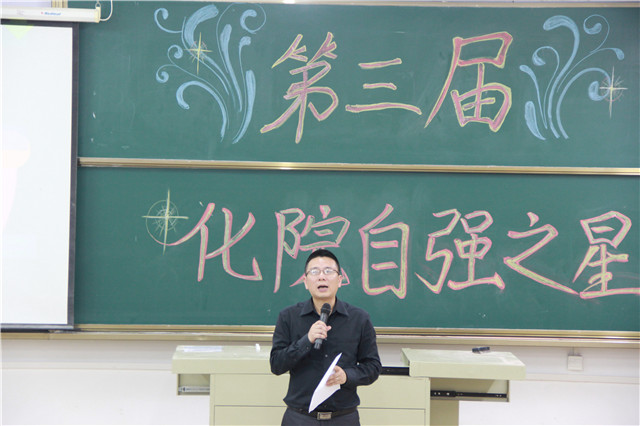 第三届
化院自强之星